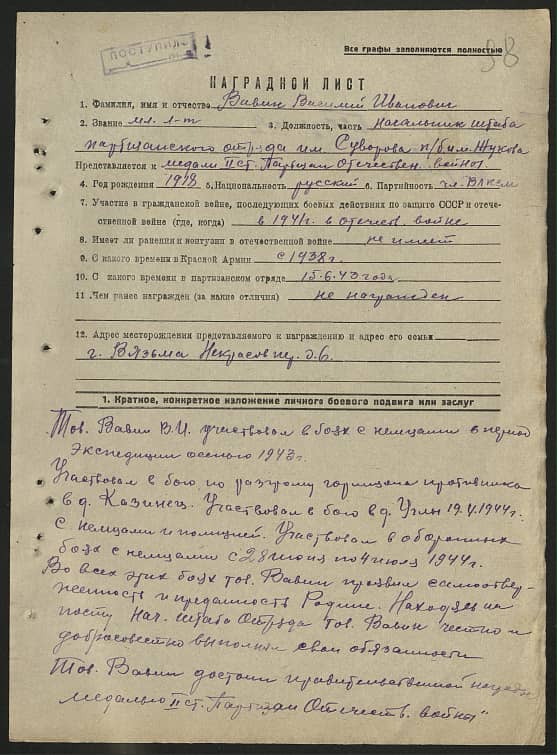 ПОСТУПИЛО
Все графы заполняются полностью
98
НАГРАДНОЙ ЛИСТ
1. Фамилия, имя и отчество Вавин Василий Иванович
2. Звание мл. л-т 3. Должность, часть начальник штаба
партизанского отряда им. Суворова п/бр им. Жукова
Представляется к медали II ст. Партизан Отечествен. войны
4. Год рождения 1918 5. Национальность русский 6. Партийность чл. ВЛКСМ
7. Участие в гражданской войне, последующих боевых действиях по защите СССР и отече-
ственной войне (где, когда) в 1941г. в отечеств. войне
8. Имеет ли ранения и контузии в отечественной войне не имеет
9. С какого времени в Красной Армии с 1938г.
10. С какого времени в партизанском отряде 15.6.43 года
11. Чем ранее награжден (за какие отличия) не награжден
12. Адрес месторождения представляемого к награждению и адрес его семьи
г. Вязьма Некрасов пер. д. 6.
1. Краткое, конкретное изложение личного боевого подвига или заслуг
Тов. Вавин В.И. участвовал в боях с немцами в период
экспедиции осенью 1943г.
Участвовал в бою по разгрому гарнизона противника
в д. Казинец. Участвовал в бою в д. Углы 19.4.1944г.
с немцами и полицией. Участвовал в оборонных
боях с немцами с 28 июня по 4 июля 1944г.
Во всех этих боях тов. Вавин проявил самоотвер-
женность и преданность Родине. Находясь на
посту Нач. штаба отряда тов. Вавин честно и
добросовестно выполнял свои обязанности
Тов. Вавин достоин правительственной награды
медалью II ст. Партизан Отечеств. войны"